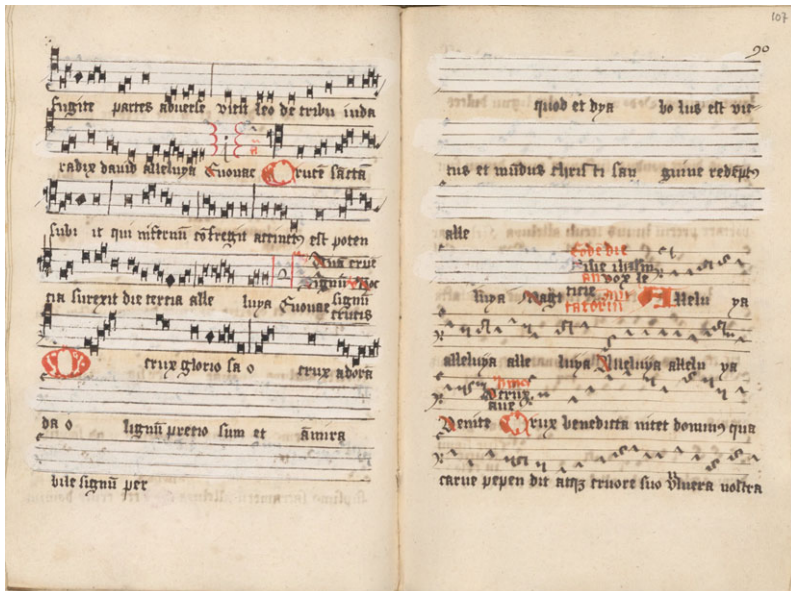 fugite partes aduerse vicit leo de tribu iuda
radix dauid alleluya Euouae Crucē sāctā
subi it qui infernū cōfregit accinctꝰ est poten
cia surexit die tercia alle luya Euouae signū
crucis
O crux glorio sa o crux adorā
da o lignū precio sum et āmira
bile signū per
107
90
quod et dya bo lus est vic
tus et mūdus chris ti san guine redēptꝰ
alle
luya Magt Allelu ya
alleluya alle luya Alleluya allelu ya
crux
aue
Venite Crux benedicta nitet dominꝰ qua
carne pepen dit atqꝫ cruore suo vulnera nostra